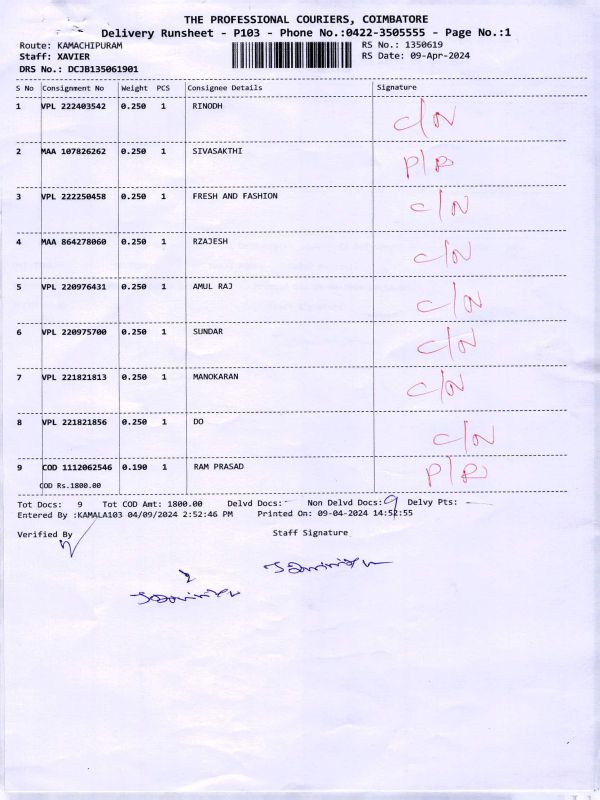 THE PROFESSIONAL COURIERS, COIMBATORE
Delivery Runsheet - P103 - Phone No.:0422-3505555 - Page No.:1
Route: KAMACHIPURAM RS No.: 1350619
Staff: XAVIER RS Date: 09-Apr-2024
DRS No.: DCJB135061901
S No Consignment No Weight PCS Consignee Details Signature
1 VPL 222403542 0.250 1 RINODH C/N
2 MAA 107826262 0.250 1 SIVASAKTHI P/R
3 VPL 222250458 0.250 1 FRESH AND FASHION C/N
4 MAA 864278060 0.250 1 RZAJESH C/N
5 VPL 220976431 0.250 1 AMUL RAJ C/N
6 VPL 220975700 0.250 1 SUNDAR C/N
7 VPL 221821813 0.250 1 MANOKARAN C/N
8 VPL 221821856 0.250 1 DO C/N
9 COD 1112062546 0.190 1 RAM PRASAD P/R
COD Rs.1800.00
Tot Docs: 9 Tot COD Amt: 1800.00 Delvd Docs: - Non Delvd Docs: 9 Delvy Pts: -
Entered By :KAMALA103 04/09/2024 2:52:46 PM Printed On: 09-04-2024 14:52:55
Verified By Staff Signature